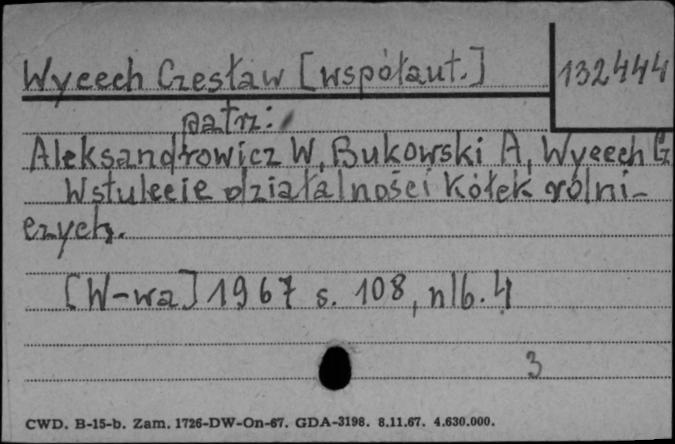 Wycech Czesław [współaut.]
132444
patrz:
Aleksandrowicz W, Bukowski A, Wycech Cz
W stulecie działalności kółek rolni-
czych.
[W-wa] 1967 s. 108, nlb. 4
3
CWD. B-15-b. Zam. 1726-DW-On-67. GDA-3198. 8.11.67. 4.630.000.